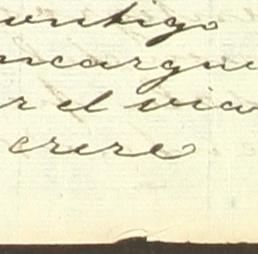 contigo
encargue
r el via
crere